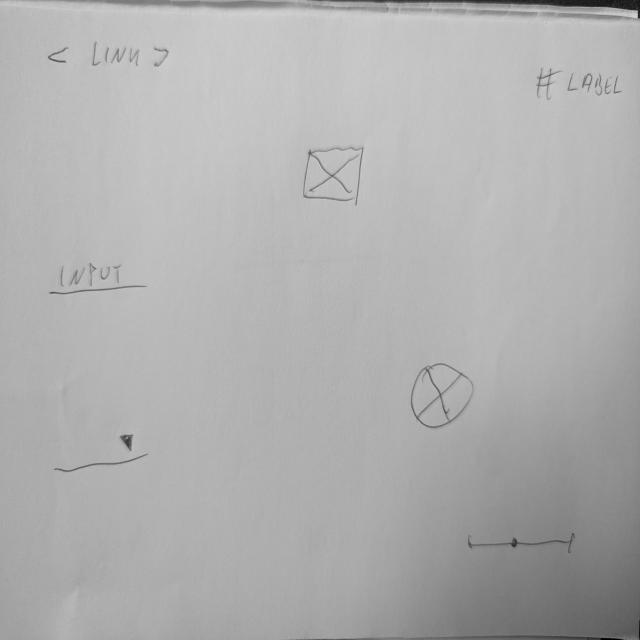 < LINK >
# LABEL
INPUT